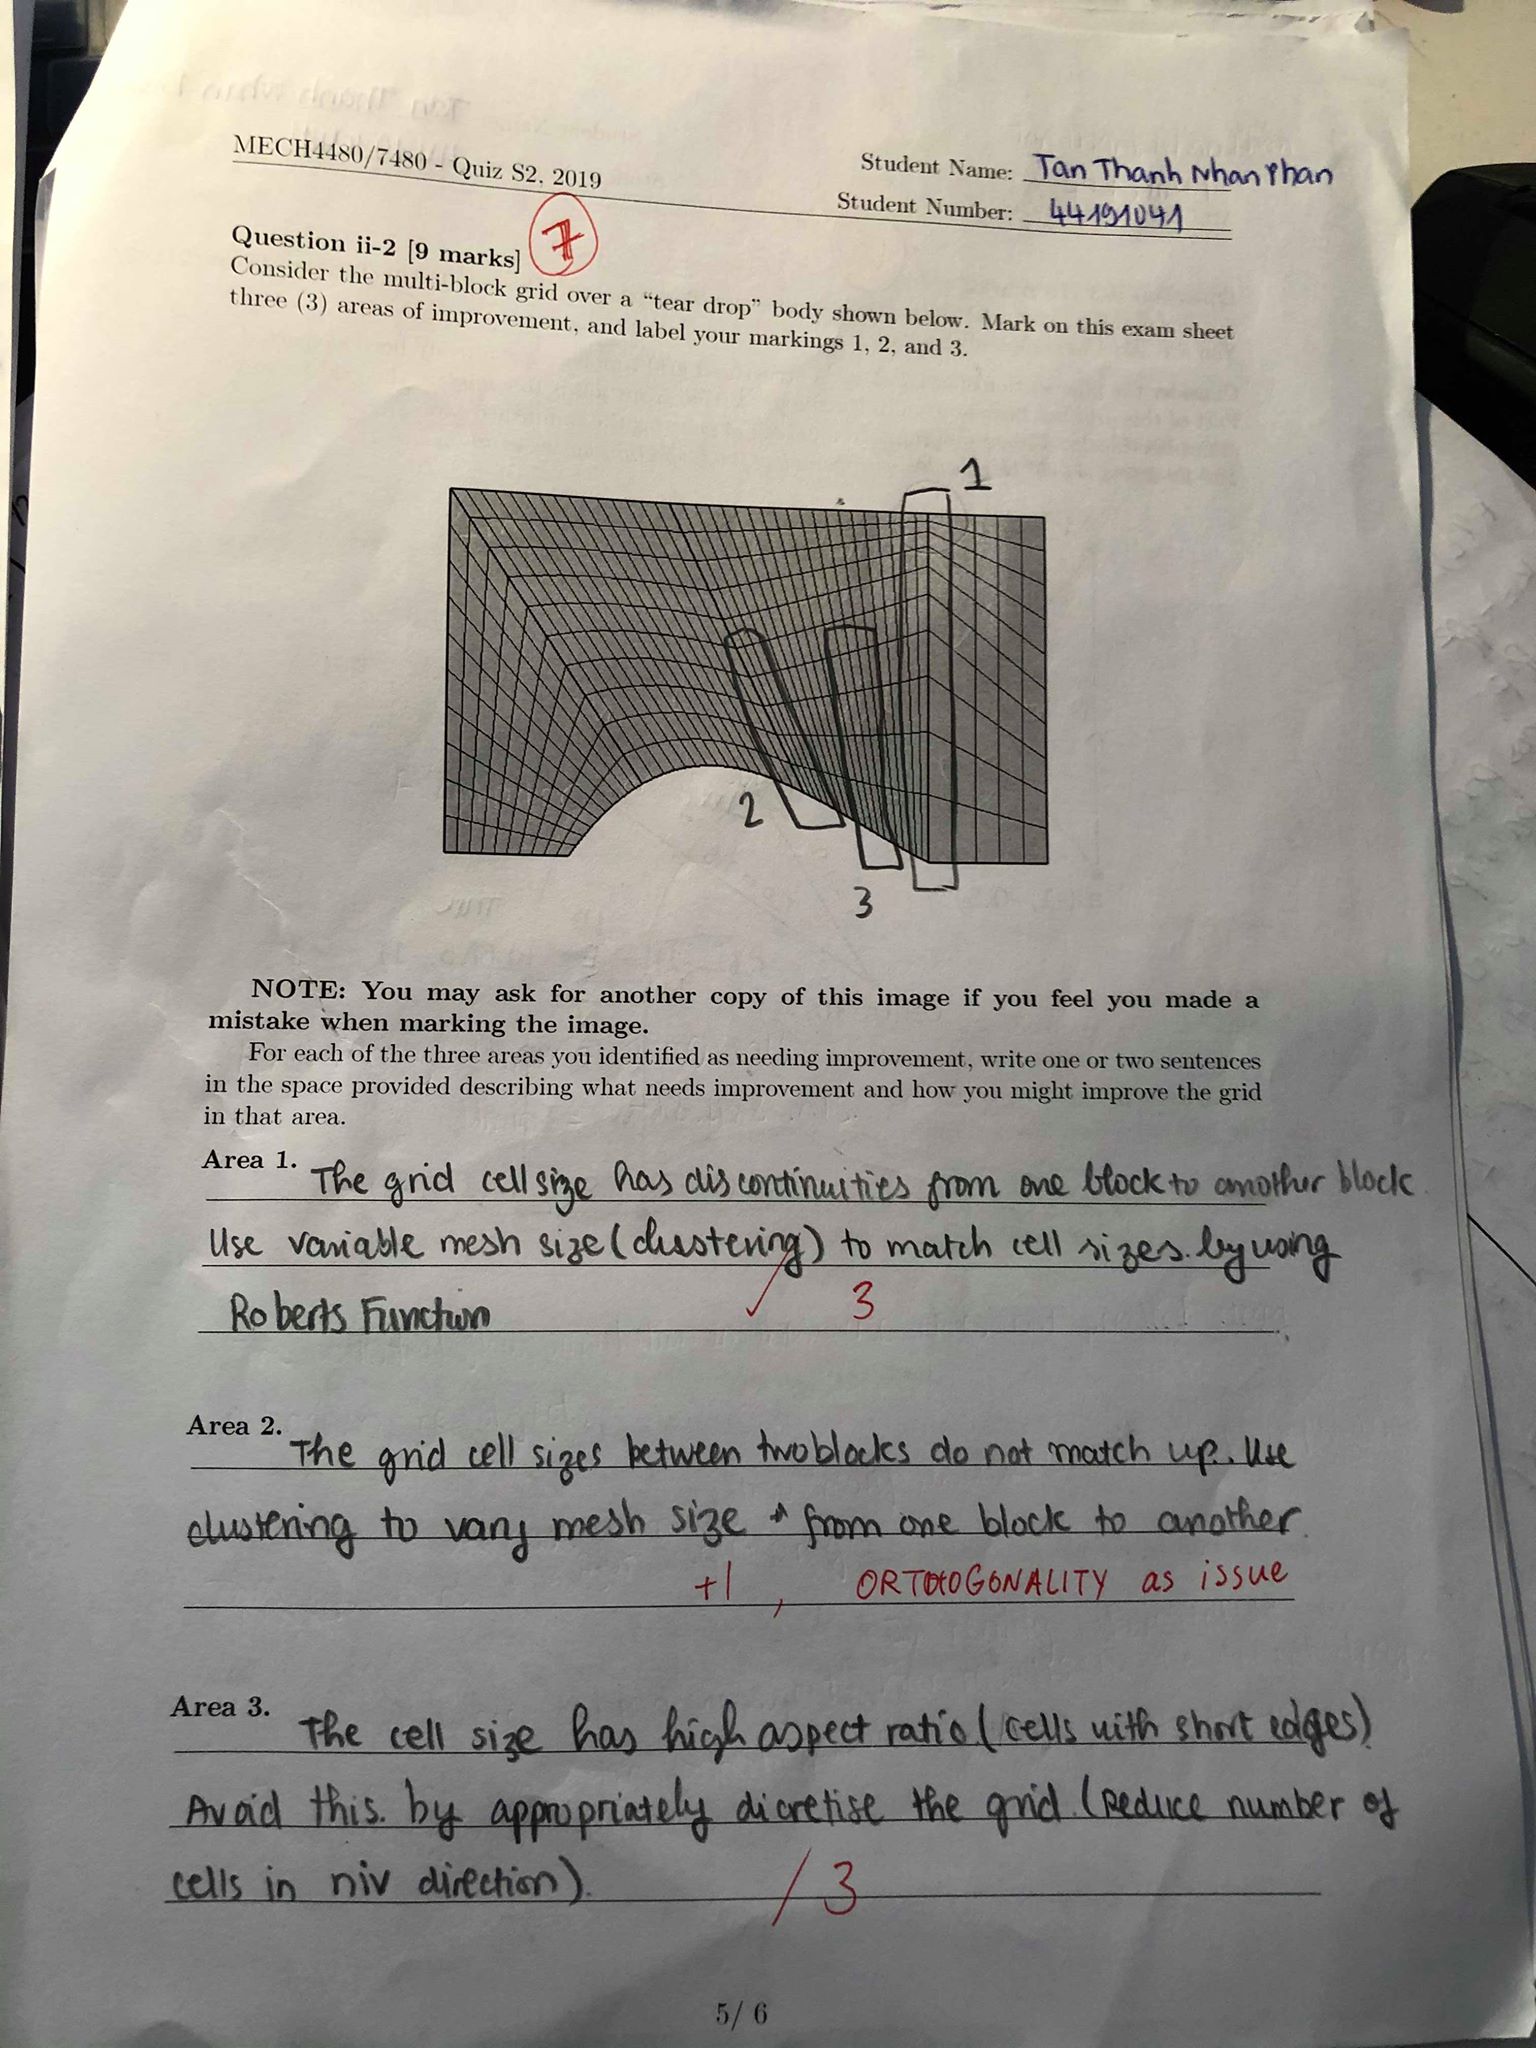 MECH4480/7480 - Quiz S2, 2019
Student Name: Tan Thanh Nhan Phan
Student Number: 44191041
Question ii-2 [9 marks] 7
Consider the multi-block grid over a “tear drop” body shown below. Mark on this exam sheet
three (3) areas of improvement, and label your markings 1, 2, and 3.
1
2
3
NOTE: You may ask for another copy of this image if you feel you made a
mistake when marking the image.
For each of the three areas you identified as needing improvement, write one or two sentences
in the space provided describing what needs improvement and how you might improve the grid
in that area.
Area 1. The grid cell size has discontinuities from one block to another block
Use variable mesh size (clustering) to match cell sizes. by using
Roberts Function
3
Area 2. The grid cell sizes between two blocks do not match up. Use
clustering to vary mesh size from one block to another.
+1, ORTHOGONALITY as issue
Area 3. The cell size has high aspect ratio (cells with short edges)
Avoid this. by appropriately dicretise the grid. (Reduce number of
cells in niv direction).
/ 3
5/ 6